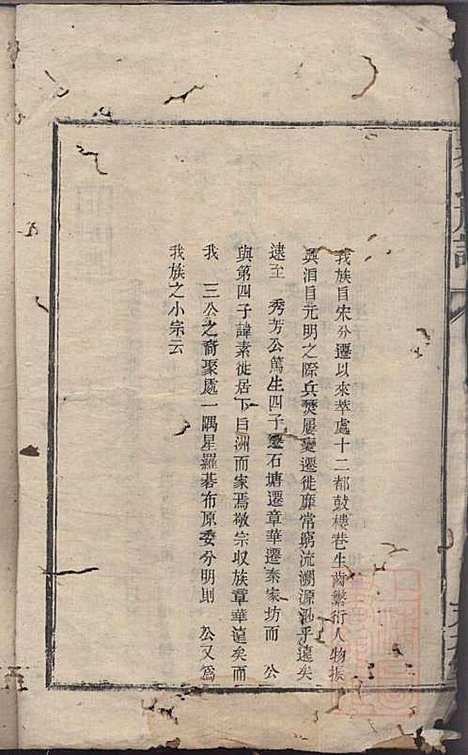 我族自宋分遷以來萃處十二都鼓樓巷生齒繁衍人物振
興洎自元明之際兵焚屢變遷徙靡常窮流溯源渺乎遠矣
逮至　秀芳公萬生四子遷石塘遷章華遷秦家坊而　公
與第四子諱素徙居下白洲而家焉敬宗収族章華遠矣而
我　三公之裔聚處一隅星羅碁布原委分明則　公又為
我族之小宗云